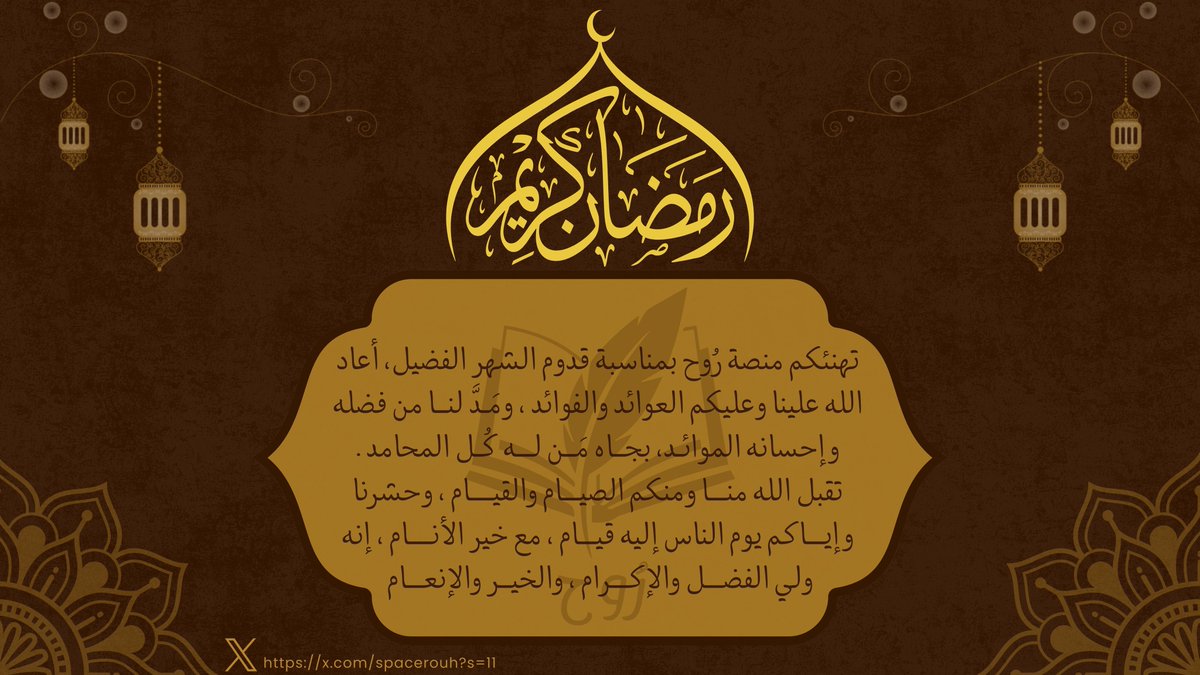 رمضان كريم
تهنئكم منصة رُوح بمناسبة قدوم الشهر الفضيل، أعاد
الله علينا وعليكم العوائد والفوائد ، ومَدَّ لنـا من فضله
وإحسانه الموائـد، بجـاه مَـن لـه كُـل المحامد .
تقبل الله منـا ومنكم الصيـام والقيـام ، وحشرنا
وإيـاكم يوم الناس إليه قيـام ، مع خير الأنـام ، إنه
ولي الفضـل والإكـرام ، والخيـر والإنعـام
روح
https://x.com/spacerouh?s=11